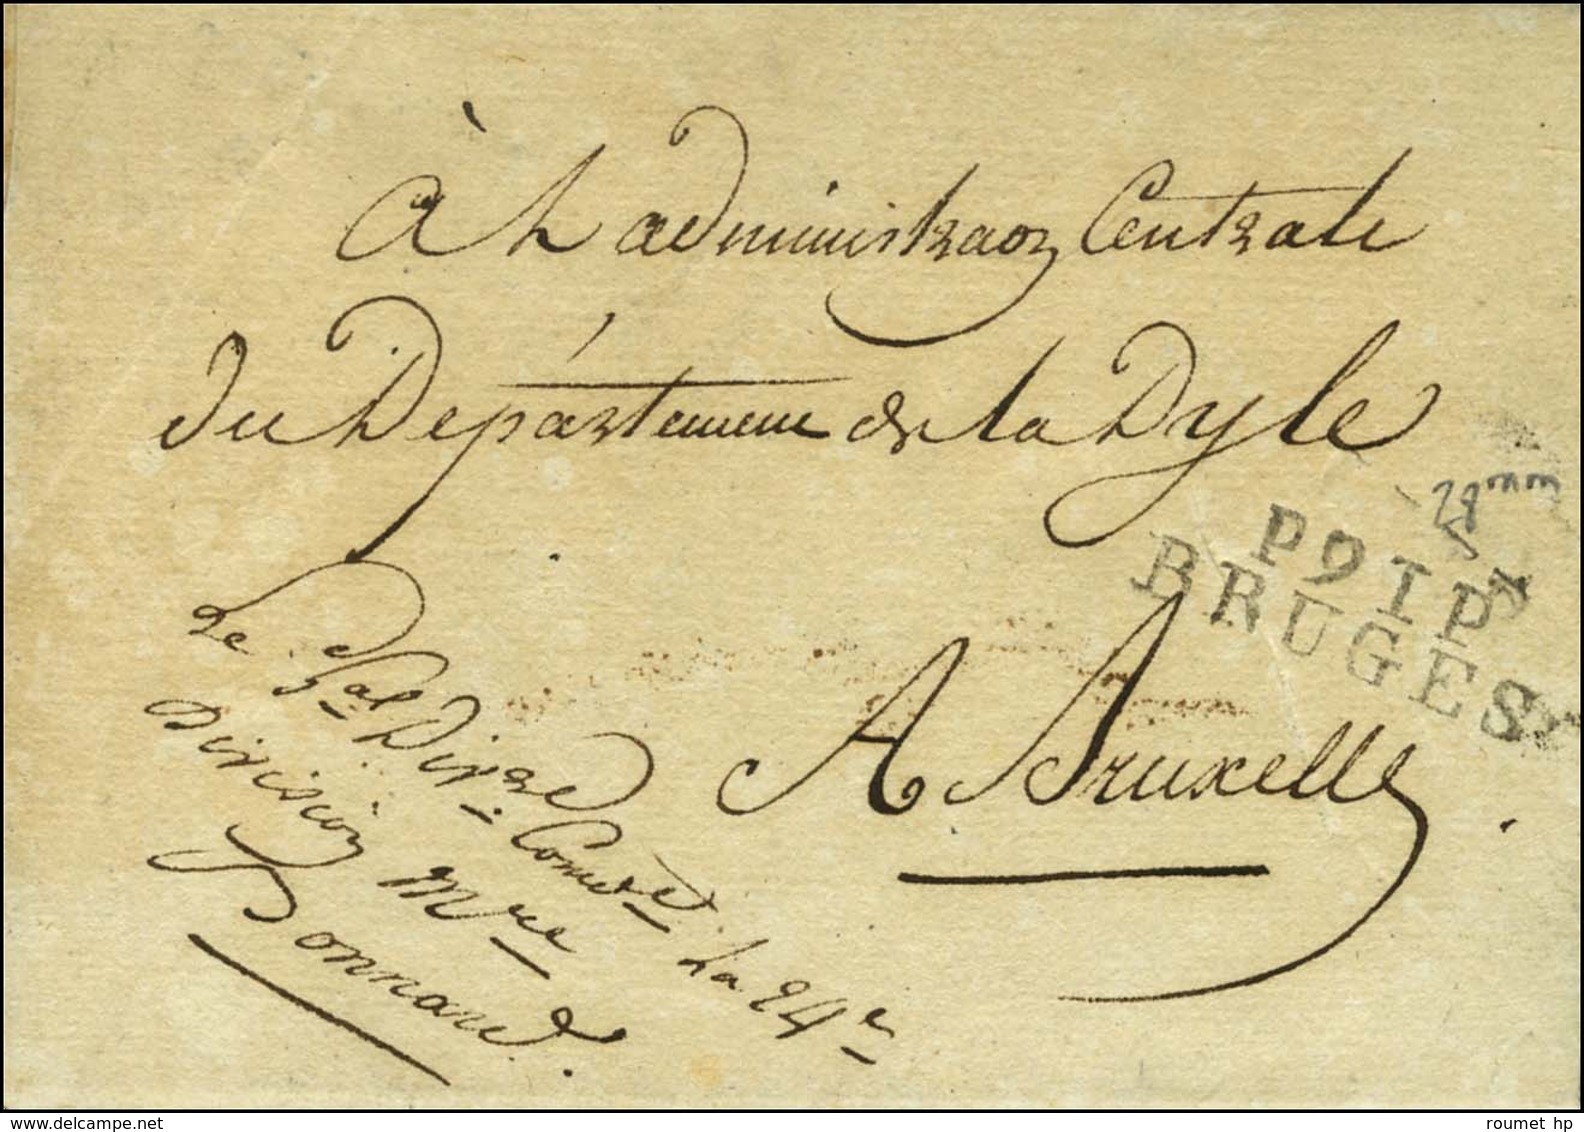 à L'administraon Centrale
du Département de la Dyle
29 mm
P91P
BRUGES
A Bruxelles
Le Gal Divre Comdt La 24e
Division Mre
Bonnard
www.delcampe.net
roumet hp